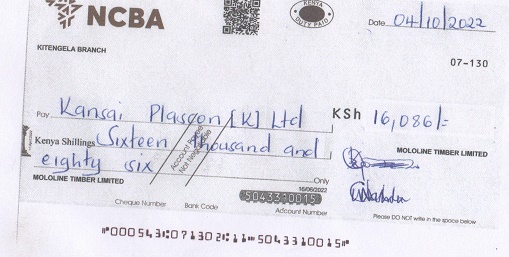 NCBA
KENYA
DUTY PAID
Date 04/10/2022
KITENGELA BRANCH
07-130
Pay Kansai Plascon [K] Ltd KSh 16,086/=
Kenya Shillings Sixteen Thousand and
eighty six Only
Account Payee
Not Negotiable
MOLOLINE TIMBER LIMITED
MOLOLINE TIMBER LIMITED
16/06/2022
5043310015
Cheque Number Bank Code Account Number
Please DO NOT write in the space below
"000543":071302":11"5043310015"